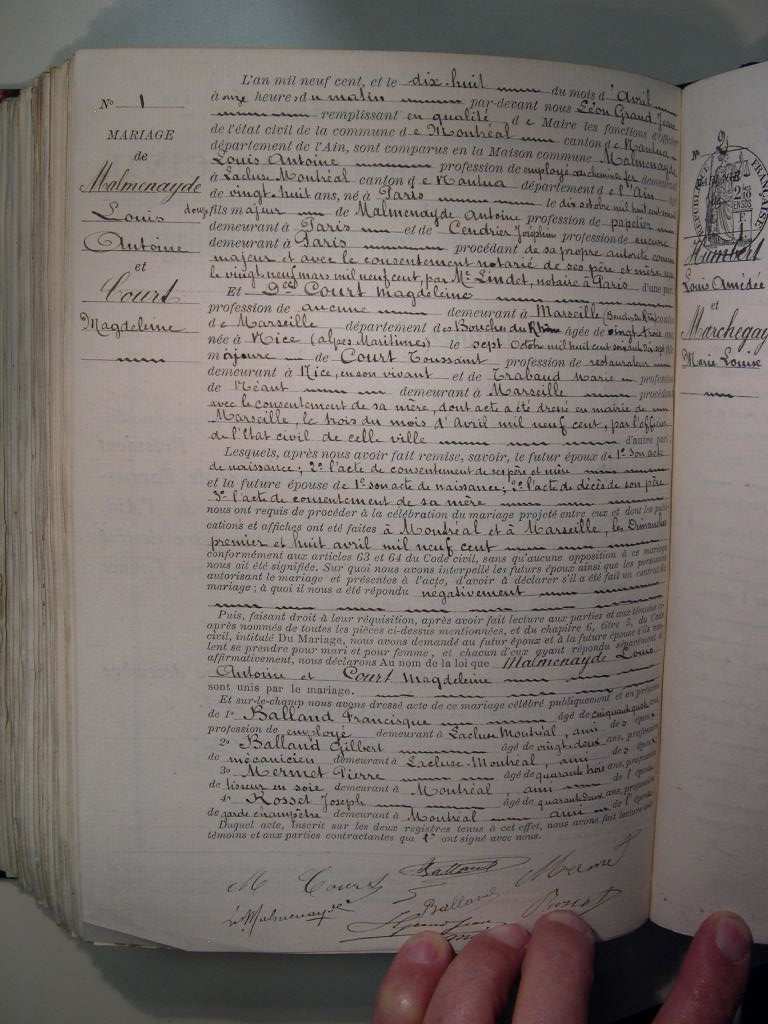 N° 1
MARIAGE
de
Malmenayde
Louis
Antoine
et
Court
Magdeleine
L'an mil neuf cent, et le dix-huit du mois d'Avril
à onze heures du matin par-devant nous Léon Grand Jean
remplissant en qualité de Maire les fonctions d'officier
de l'état civil de la commune de Montréal canton de Nantua
département de l'Ain, sont comparus en la Maison commune Malmenayde
Louis Antoine profession de employé aux chemins de fer demeurant
à Lacluse Montréal canton de Nantua département de l'Ain
de vingt-huit ans, né à Paris le dix octobre mil huit cent
fils majeur de Malmenayde Antoine profession de papetier
demeurant à Paris et de Cendrier Joséphine profession de aucune
demeurant à Paris procédant de sa propre autorité comme
majeur et avec le consentement notarié de ses père et mère
le vingt neuf mars mil neuf cent, par Me Lindet, notaire à Paris d'une part
Et Dlle Court Magdeleine
profession de aucune demeurant à Marseille (Bouches du Rhône)
de Marseille département des Bouches du Rhône âgée de vingt-trois ans
née à Nice (Alpes Maritimes) le sept Octobre mil huit cent soixante seize fille
majeure de Court Toussaint profession de restaurateur
demeurant à Nice, en son vivant et de Trabaud Marie profession
de Néant demeurant à Marseille procédant
avec le consentement de sa mère, dont acte a été dressé en mairie de
Marseille, le trois du mois d'Avril mil neuf cent, par l'officier
de l'Etat civil de celle ville d'autre part
Lesquels, après nous avoir fait remise, savoir, le futur époux de 1° son acte
de naissance; 2° l'acte de consentement de ses père et mère
et la future épouse de 1° son acte de naissance; 2° l'acte de décès de son père
3° l'acte de consentement de sa mère
nous ont requis de procéder à la célébration du mariage projeté entre eux et dont les publi-
cations et affiches ont été faites à Montréal et à Marseille, les Dimanches
premier et huit avril mil neuf cent
conformément aux articles 63 et 64 du Code civil, sans qu'aucune opposition à ce mariage
nous ait été signifiée. Sur quoi nous avons interpellé les futurs époux ainsi que les personnes
autorisant le mariage et présentes à l'acte, d'avoir à déclarer s'il a été fait un contrat de
mariage; à quoi il nous a été répondu négativement
Puis, faisant droit à leur réquisition, après avoir fait lecture aux parties et aux témoins ci-
après nommés de toutes les pièces ci-dessus mentionnées, et du chapitre 6, titre 5, du Code
civil, intitulé Du Mariage, nous avons demandé au futur époux et à la future épouse s'ils veu-
lent se prendre pour mari et pour femme, et chacun d'eux ayant répondu séparément et
affirmativement, nous déclarons Au nom de la loi que Malmenayde Louis
Antoine et Court Magdeleine
sont unis par le mariage.
Et sur-le-champ nous avons dressé acte de ce mariage célébré publiquement et en présence
de 1° Balland Francisque âgé de cinquante ans,
profession de employé demeurant à Lacluse Montréal, ami de l'époux
2° Balland Gilbert âgé de vingt-deux ans, profession
de mécanicien demeurant à Lacluse-Montréal, ami de l'époux
3° Mermet Pierre âgé de quarante trois ans, profession
de tisseur en soie demeurant à Montréal, ami de l'époux
4° Rosset Joseph âgé de quarante deux ans, profession
de garde champêtre demeurant à Montréal ami de l'époux
Duquel acte, inscrit sur les deux registres tenus à cet effet, nous avons fait lecture aux
témoins et aux parties contractantes qui ont signé avec nous.
M Court Balland Mermet
L. Malmenayde Balland Rosset
N° 2
RÉPUBLIQUE FRANÇAISE
Humbert
Louis Amédée
et
Marchegay
Marie Louise